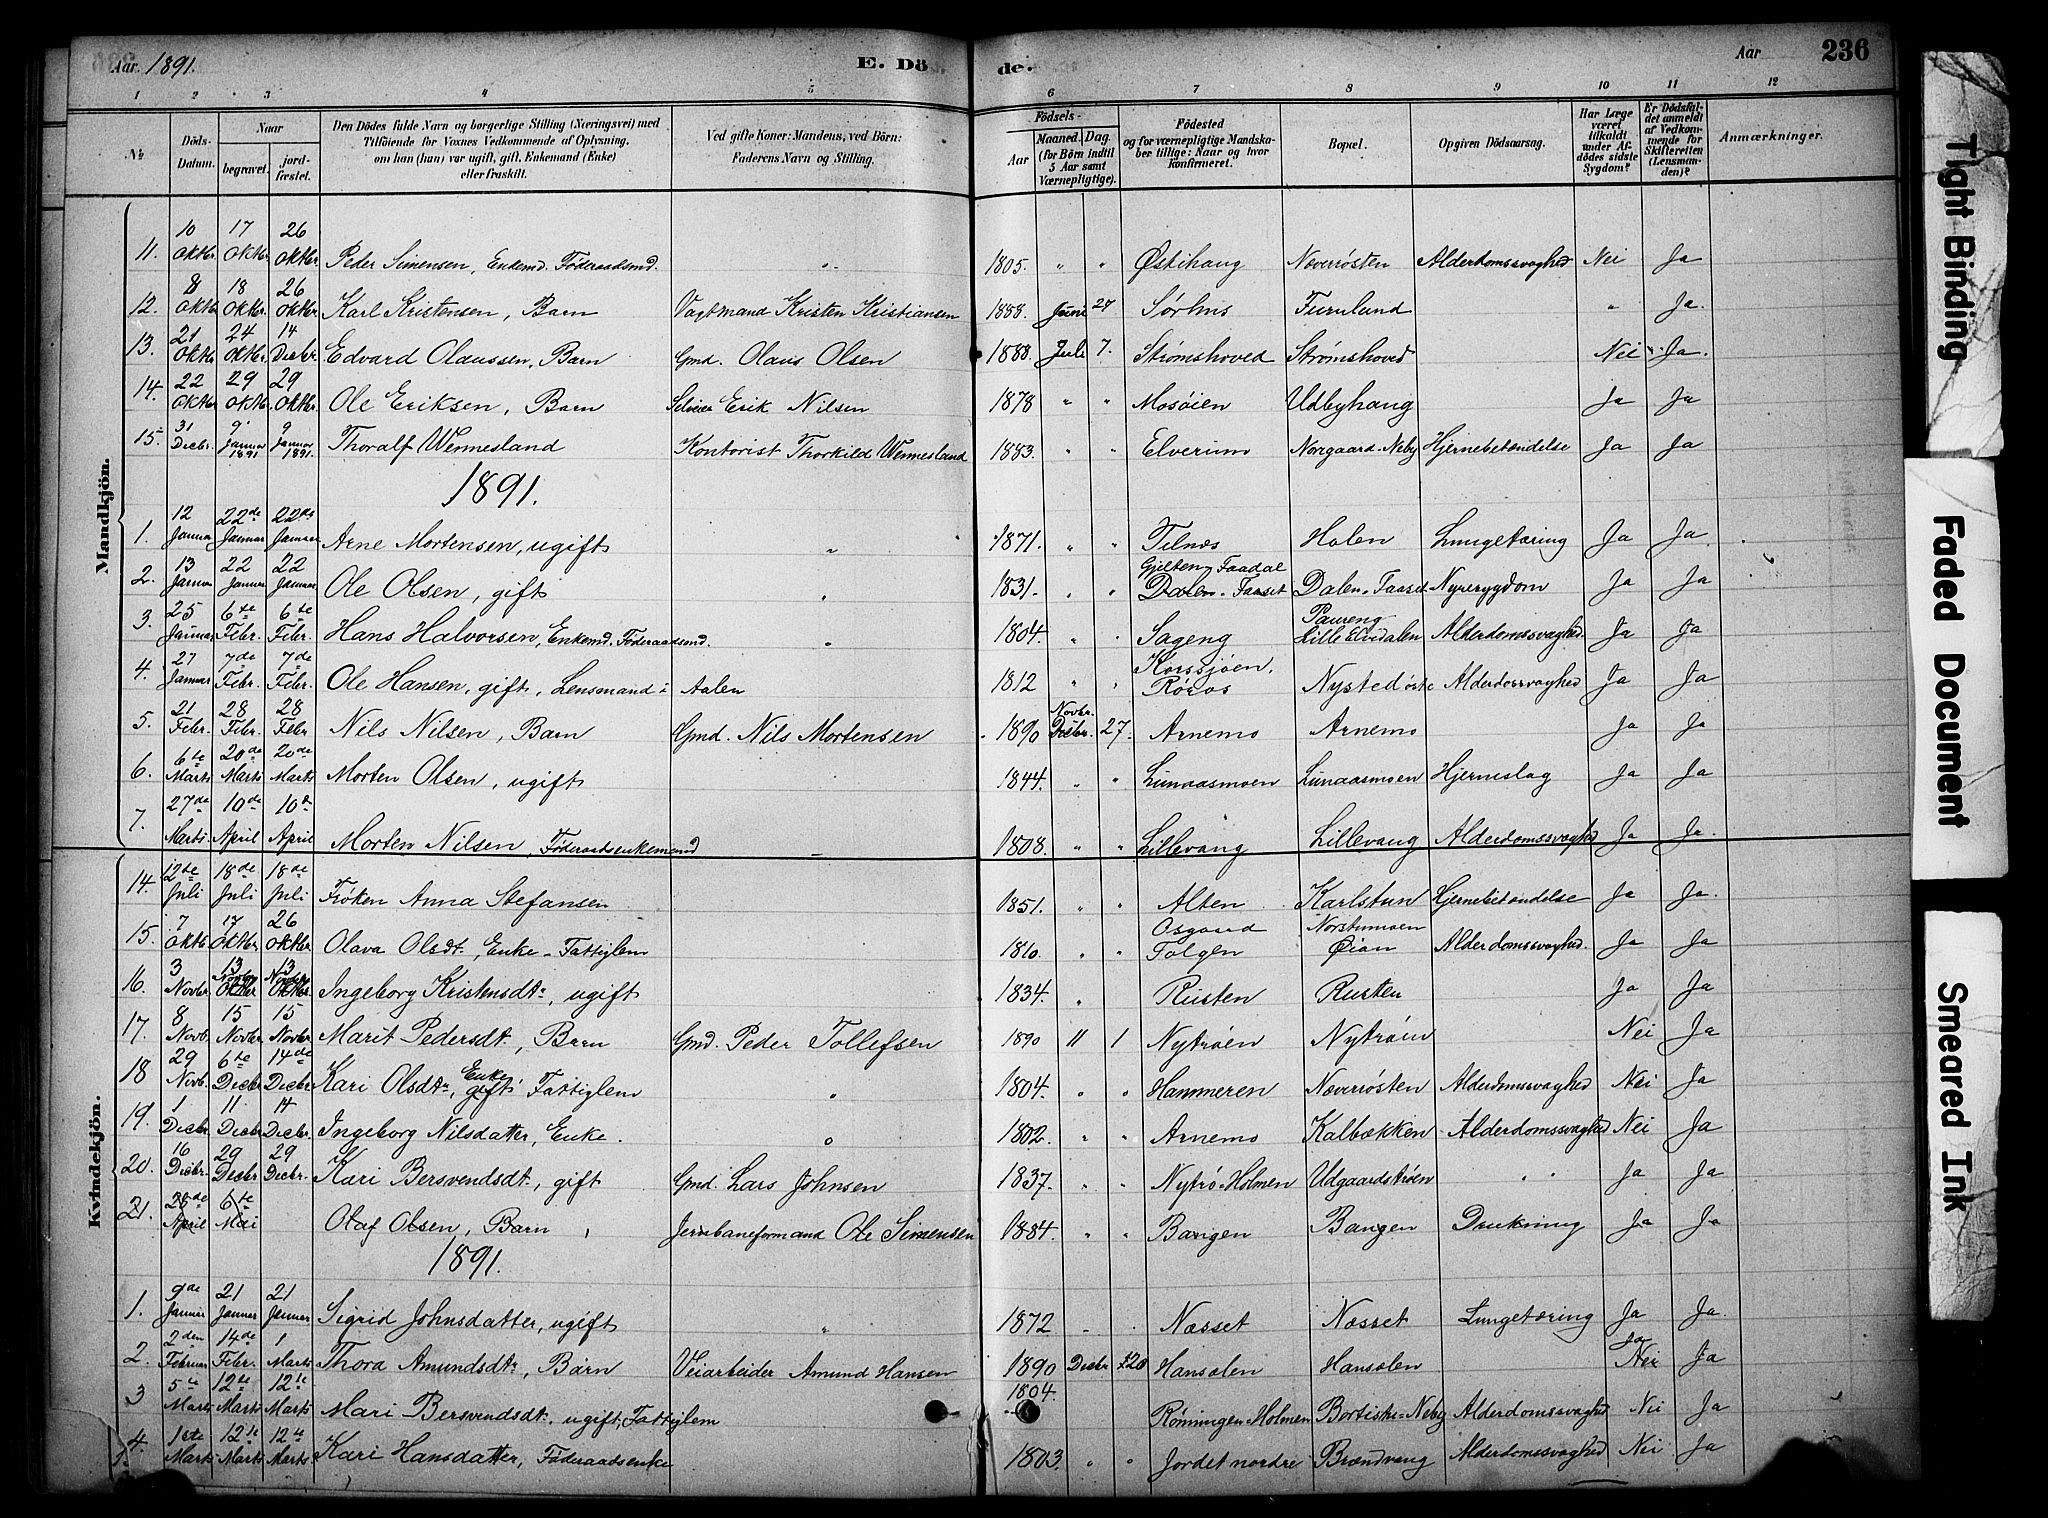 Aar 1891. E. Dö de. Aar 236
1 2 3 4 5 6 7 8 9 10 11 12
№ Döds-Datum. Naar begravet. jordfæstet. Den Dödes fulde Navn og borgerlige Stilling (Næringsvei) med Tilföiende for Voxnes Vedkommende af Oplysning, om han (hun) var ugift, gift, Enkemand (Enke) eller fraskilt. Ved gifte Koner: Mandens, ved Börn: Faderens Navn og Stilling. Födsels- Aar Maaned. Dag. (for Börn indtil 5 Aar samt Værnepligtige). Födested og for værnepligtige Mandskaber tillige: Naar og hvor konfirmeret. Bopæl. Opgiven Dödsaarsag. Har Læge været tilkaldt under Afdödes sidste Sygdom? Er Dödsfaldet anmeldt af Vedkommende for Skifteretten (Lensmanden)? Anmærkninger.
Mandkjön.
11. 10 Oktbr. 17 Oktbr. 26 Oktbr. Peder Simensen, Enkemd. Föderaadsmd. " 1805. " " Østihaug Noverrösten Alderdomssvaghed Nei Ja
12. 8 Oktbr 18 Oktbr. 26 Oktbr. Karl Kristensen, Barn Vagtmand Kristen Kristiansen 1888. Juni 27 Sørhus Furulund " Ja.
13. 21 Oktbr 24 Oktbr. 14 Decbr. Edvard Olaussen, Barn Gmd. Olaus Olsen 1888. Juli 7. Strømshoved Strømshoved Nei Ja.
14. 22 Oktbr. 29 Oktbr. 29 Oktbr. Ole Eriksen, Barn Selveier Erik Nilsen 1878 " " Mosöien Udbyhaug Ja Ja
15. 31 Decbr. 9 Januar 1891 9 Januar 1891. Thoralf Wermesland Kontorist Thorkild Wermesland 1883. " " Elverum Norgaard-Neby Hjernebetændelse Ja Ja
1891.
1. 12 Januar 22de Januar 22de Januar Arne Mortensen, ugift " 1871. " " Tilnes Holen Lungetæring Ja Ja.
2. 13 Januar 22 Januar 22 Januar Ole Olsen, gift " 1831. " " Gjelten, Faadal Dalen-Faaset Dalen-Faaset Nyresygdom Ja Ja
3. 25 Januar 6te Febr. 6te Febr. Hans Halvorsen, Enkemd. Föderaadsmd. " 1804. " " Sageng Paureng Lille Elvedalen Alderdomssvaghed Ja Ja
4. 27 Januar 7de Febr. 7de Febr. Ole Hansen, gift, Lensmand i Aalen 1812 " " Korssjøen, Röros Nystedöste Alderdossvaghed Ja Ja
5. 21 Febr. 28 Febr. 28 Febr Nils Nilsen, Barn Gmd. Nils Mortensen 1890 Novbr. Decbr. 27. Arnemo Arnemo Ja Ja
6. 6te Marts 20de Marts 20de Marts Morten Olsen, ugift 1844. " " Lunaasmoen Lunaasmoen Hjerneslag Ja Ja
7. 27de Marts 10de April 10de April Morten Nilsen, Föderaadsenkemand 1808. " " Lillevang Lillevang Alderdomssvaghed Ja Ja.
Kvindekjön.
14. 12te Juli 18de Juli 18de Juli Frøken Anna Stefansen 1851. " " Alten Karlstun Hjernebetændelse Ja Ja.
15. 7 Oktbr 17 Oktbr 26 Oktbr Olava Olsdt, Enke - Fattiglem 1810. " " Osgaard Tolgen Norstumoen Øian Alderdomssvaghed. Ja Ja
16. 3 Novbr. 13 Novbr Oktbr 13 Novbr Oktbr. Ingeborg Kristensdt., ugift 1834. " Rusten Rusten Ja Ja
17. 8 Novb. 15 Novbr 15 Novbr Marit Pedersdt, Barn Gmd. Peder Tollefsen 1890 11 1 Nytröen Nytröen Nei Ja
18 29 Novb. 6te Decbr 14de Decbr Kari Olsdtr, Enke gift Fattiglem " 1804. " " Hammeren Noverrösten Alderdomssvaghed Nei Ja
19. 1 Decbr 11 Decbr 14 Decbr. Ingeborg Nilsdatter, Enke. " 1802. " " Arnemo Kalbækken Alderdomssvaghed Nei Ja
20. 16 Decbr. 29 Decbr 29 Decbr. Kari Bersvendsdt., gift Gmd. Lars Johnsen 1837. " " Nytrö-Holmen Udgaardströen " Ja Ja
21. 28de April 6te Mai Olaf Olsen, Barn Jernbaneformand Ole Simensen 1884. " " Bangen Bangen Drukning Ja Ja
1891.
1. 9de Januar 21 Januar 21 Januar Sigrid Johnsdatter, ugift " 1872 " Næsset Næsset Lungetæring Ja Ja.
2. 2den Februar 14de Febr. 1 Marts Thora Amundsdt., Barn Veiarbeider Amund Hansen 1890 Decbr 20 Hansolen Hansolen Ja Nei Ja
3 5te Marts 12te Marts 12te Marts Mari Bersvendsdt. ugift, Fattiglem 1804. Rönningen-Holmen Neby Alderdomssvaghed Nei Ja
4. 1ste Marts 12te Marts 12te Marts Kari Hansdatter, Föderaadsenke 1803. " " Jordet nordre Brændvang Alderdomssvaghed Nei Ja
Tight Binding
Faded Document
Smeared Ink